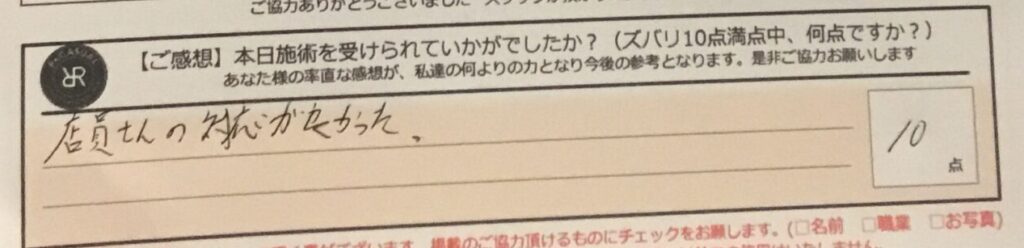 ご協力ありがとうございました
【ご感想】本日施術を受けられていかがでしたか？（ズバリ10点満点中、何点ですか？）
あなた様の率直な感想が、私達の何よりの力となり今後の参考となります。是非ご協力お願いします
店員さんの対応が良かった。
10
点
掲載のご協力頂けるものにチェックをお願します。（□名前 □職業 □お写真）